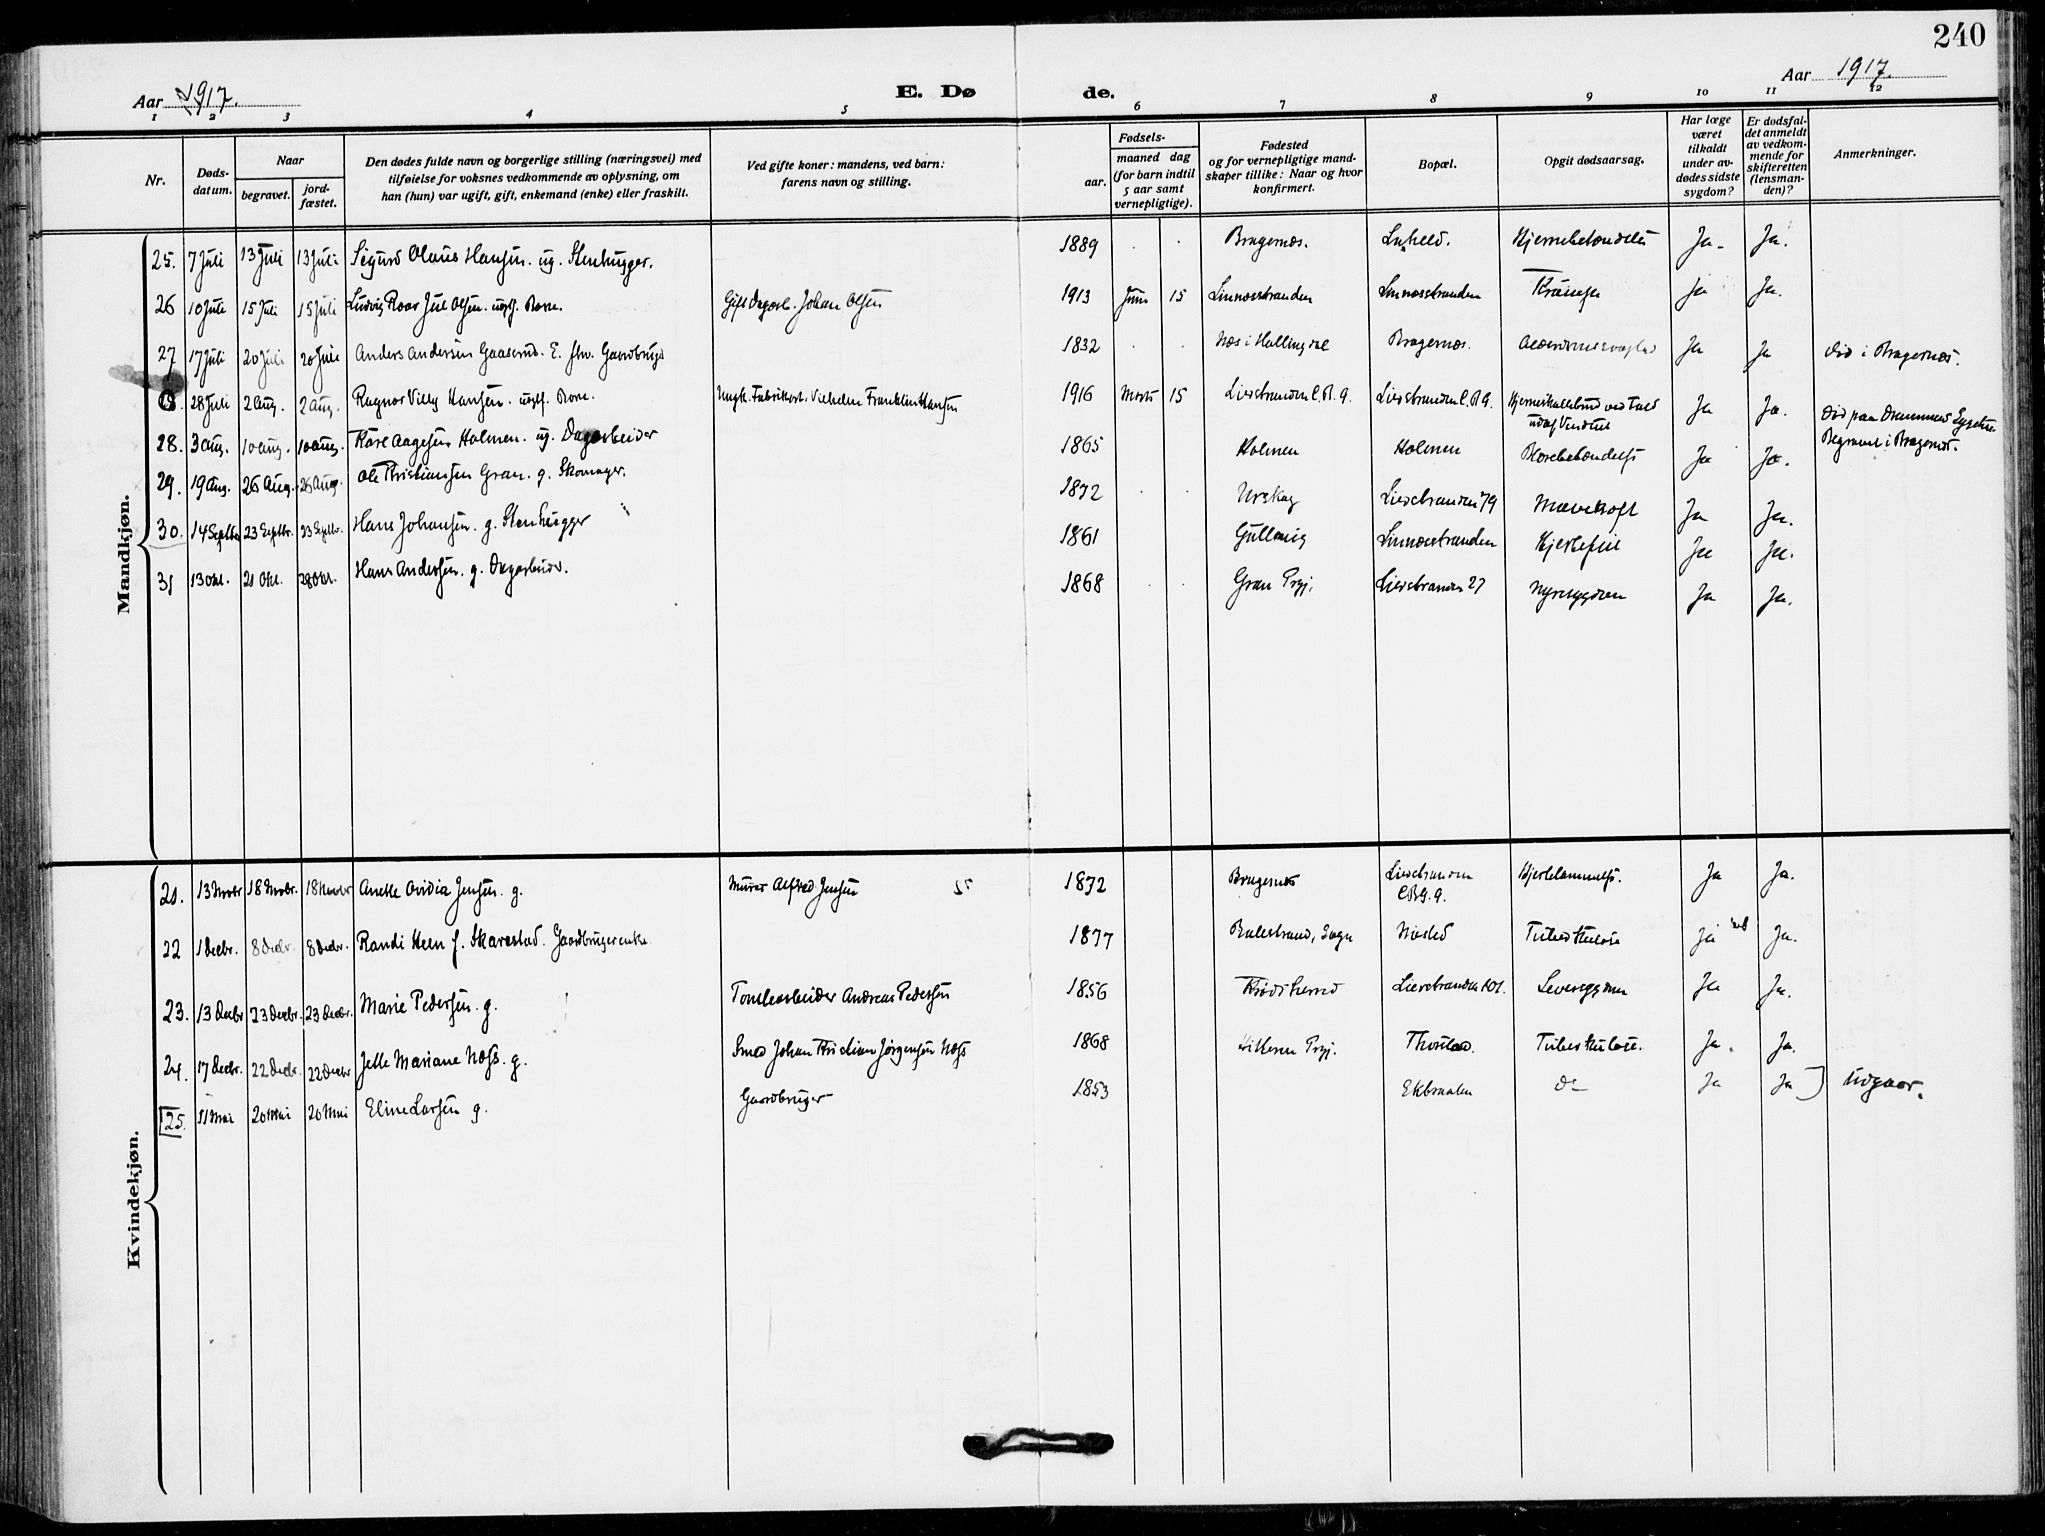 240
Aar 1917.
E. Døde.
Aar 1917.
1 2 3 4 5 6 7 8 9 10 11 12
Nr.
Døds-
datum.
Naar
begravet.
jord-
fæstet.
Den dødes fulde navn og borgerlige stilling (næringsvei) med
tilføielse for voksnes vedkommende av oplysning, om
han (hun) var ugift, gift, enkemand (enke) eller fraskilt.
Ved gifte koner: mandens, ved barn:
farens navn og stilling.
Fødsels-
aar.
maaned dag
(for barn indtil
5 aar samt
vernepligtige).
Fødested
og for vernepligtige mand-
skaper tillike: Naar og hvor
konfirmert.
Bopæl.
Opgit dødsaarsag.
Har læge
været
tilkaldt
under av-
dødes sidste
sygdom?
Er dødsfal-
det anmeldt
av vedkom-
mende for
skifteretten
(lensman-
den)?
Anmerkninger.
Mandkjøn.
25. 7 Juli 13 Juli 13 Juli Sigurd Olaus Hansen. ug. Stenhugger. 1889 Bragernes. Hjernebetændelse Ja. Ja.
26 10 Juli 15 Juli 15 Juli Ludvig Roar Juel Olsen. Barn. Gift Dagarb. Johan Olsen 1913 Juni 15 Linnesstranden Linnesstranden Krampe Ja Ja.
27 17 Juli 20 Juli 20 Juli Anders Andersen Gaaserud. E. fhv. Gaardbruger 1832 Næs i Hallingdal Bragernes. Ja Ja død i Bragernes.
28 Juli 2 Aug. 2 Aug. Ragnar Villy Hansen. Barn. Ungk. Fabrikarb. Vilhelm Franklin Hansen 1916 Marts 15 Lierstranden C. B. 9. Lierstranden C. B. 9. Hjerneskallebrud ved Fald
ud af Vindue Ja Ja. død paa Drammens Sygehus
Begravet i Bragernes.
28. 3 Aug. 10 Aug. 10 Aug. Karl Aagesen Holmen. ug. Dagarbeider 1865 Holmen Holmen Ja Ja.
29. 19 Aug. 26 Aug. 26 Aug. Ole Kristiansen Gran. g. Skomager. 1872 Urskog Lierstranden 79 Mavekræft Ja Ja.
30. 14 Septbr 23 Septbr. 23 Septbr. Hans Johansen. g. Stenhugger 1861 Gullaug Linnesstranden Hjertefeil Ja Ja.
31 13 Okt. 21 Okt. 28 Okt. Hans Andersen. g. Dagarbeider. 1868 Gran Prgj. Lierstranden 27 Nyresygdom Ja Ja.
Kvindekjøn.
21. 13 Novbr 18 Novbr. 18 Novbr Anette Ovidia Jensen. g. Murer Alfred Jensen 1872 Bragernes Lierstranden
C.B. 9. Hjertelammelse. Ja Ja.
22 1 Decbr. 8 Decbr. 8 Decbr. Randi Heen f. Skarestad. Gaardbrugerenke 1877 Balestrand, Sogn Tuberkulose Ja Ja.
23. 13 Decbr 23 Decbr. 23 Decbr. Marie Pedersen. g. Tomtearbeider Andreas Pedersen 1856 Krødsherred Lierstranden 101. Leversygdom Ja Ja.
24. 17 Decbr. 22 Decbr. 22 Decbr Jelle Mariane Næss. g. Smed Johan Kristian Jørgensen Næss 1868 Hitteren Prgj. Thorstad. Tuberkulose. Ja. Ja.
25. 11 Mai 20 Mai 20 Mai Eline Larsen g. Gaardbruger 1853 do Ja Ja Udgaar.